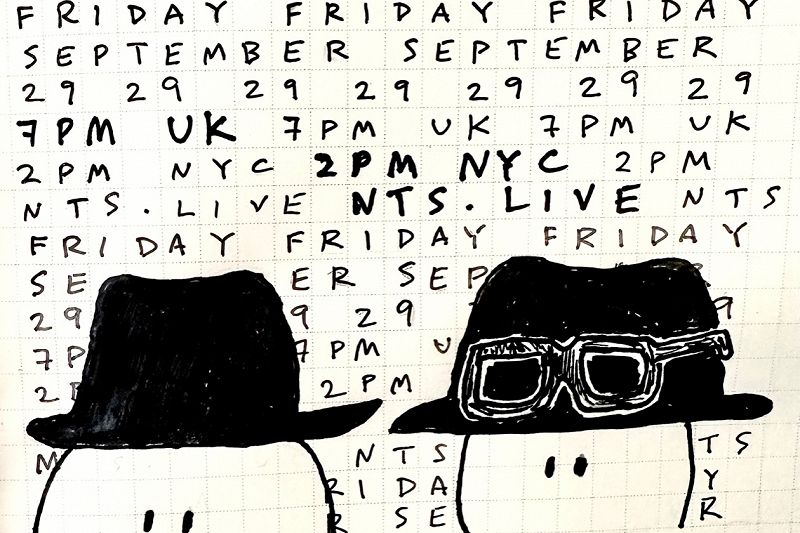 FRIDAY FRIDAY FRIDAY
SEPTEMBER SEPTEMBER
29 29 29 29 29 29 29
7PM UK 7PM UK 7PM UK
2PM NYC 2PM NYC 2PM
NTS.LIVE NTS.LIVE NTS
FRIDAY FRIDAY FRIDAY
SE ER SEP R
29 9 29 9
7P 7PM U
2 2PM
M NTS TS
RIDA Y
R SE R